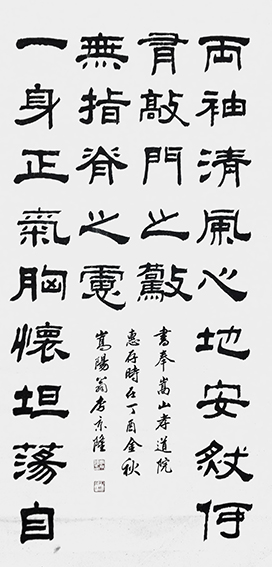 両袖清風心地安然何
有敲門之驚
一身正氣胸懷坦蕩自
無指脊之憂
書奉嵩山孝道院
惠存時在丁酉金秋
嵩陽翁李亦隆